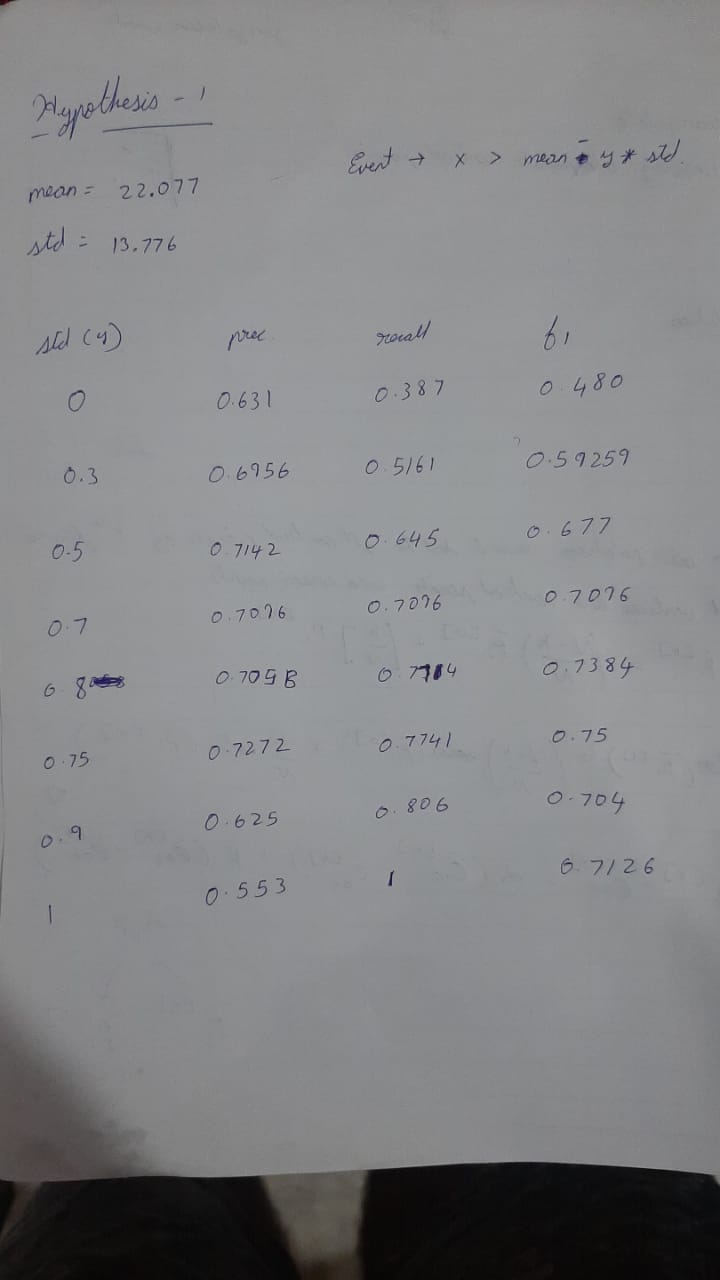 Hypothesis - 1
Event → x > mean - y * std.
mean = 22.077
std = 13.776
std (y) prec recall f1
0 0.631 0.387 0.480
0.3 0.6956 0.5161 0.59259
0.5 0.7142 0.645 0.677
0.7 0.7096 0.7096 0.7096
0.8 0.7058 0.7384
0.75 0.7272 0.7741 0.75
0.9 0.625 0.806 0.704
1 0.553 1 0.7126